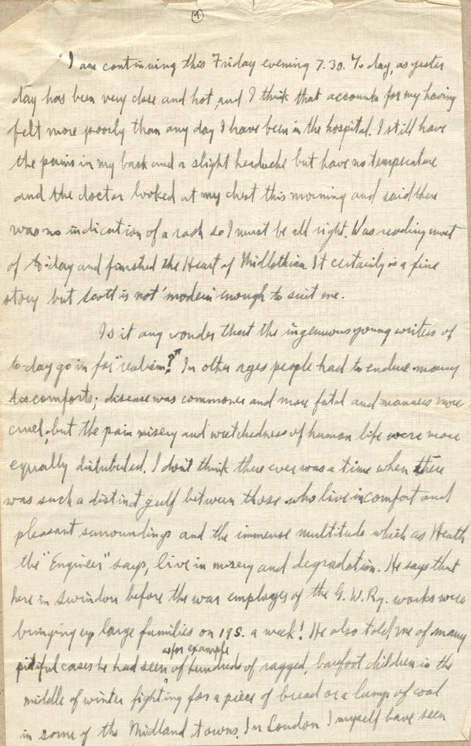 4
I am continuing this Friday evening 7.30. To day, as yester
day has been very close and hot and I think that accounts for my having
felt more poorly than any day I have been in the hospital. I still have
the pains in my back and a slight headache but have no temperature
and the doctor looked at my chest this morning and said there
was no indication of a rash so I must be all right. Was reading most
of to day and finished the Heart of Midlothian It certainly is a fine
story but Scott is not "modern" enough to suit me.
Is it any wonder that the ingenuous young writers of
to-day go in for "realism"? In other ages people had to endure many
discomforts; disease was commoner and more fatal and manners more
cruel, but the pain misery and wretchedness of human life were more
equally distributed. I don't think there ever was a time when there
was such a distinct gulf between those who live in comfort and
pleasant surroundings and the immense multitude which as Heath
the "Engineer" says, live in misery and degradation. He says that
here in Swindon before the war employes of the G.W.Ry. works were
bringing up large families on 19s. a week! He also told me of many
as for example
pitiful cases he had seen of hundreds of ragged, barefoot children in the
middle of winter fighting for a piece of bread or a lump of coal
in some of the Midland towns. In London I myself have seen